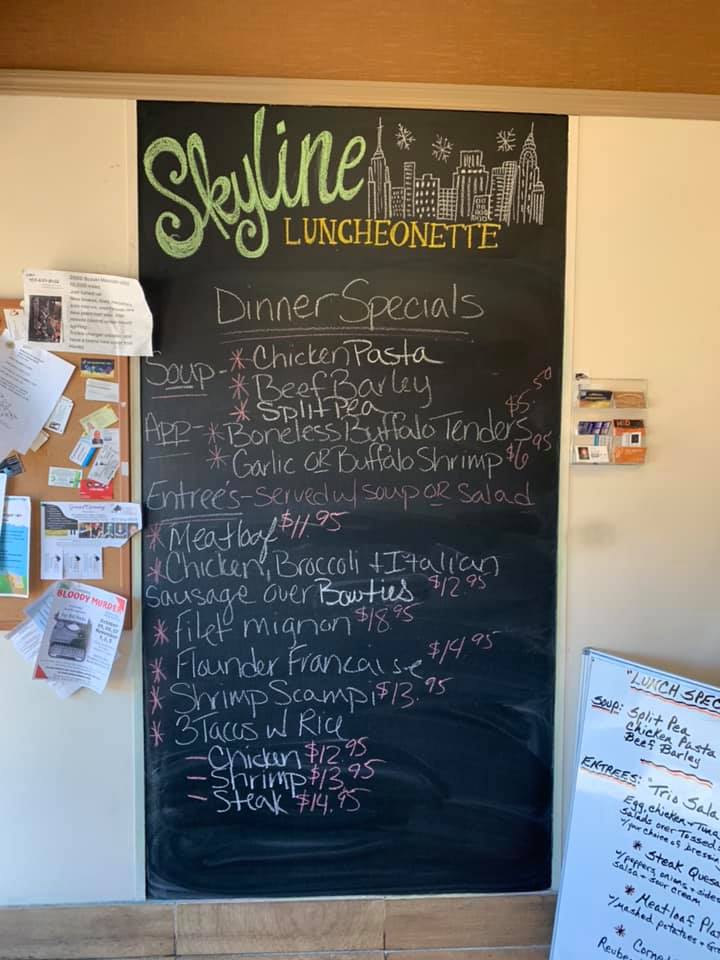 Skyline
LUNCHEONETTE
Dinner Specials
Soup - * Chicken Pasta
* Beef Barley
* Split Pea
App - * Boneless Buffalo Tenders $5.50
* Garlic OR Buffalo Shrimp $6.95
Entree's - served w/ soup OR salad
* Meatloaf $11.95
* Chicken, Broccoli + Italian
sausage over Bowties $12.95
* filet mignon $18.95
* Flounder Francaise $14.95
* Shrimp Scampi $13.95
* 3 Tacos w Rice
- Chicken $12.95
- Shrimp $13.95
- Steak $14.95
"LUNCH SPEC
SOUP: Split Pea
Chicken Pasta
Beef Barley
ENTREES: *Trio Sala
Egg, chicken + Tuna
salads over Tossed
w/ your choice of dressin
* Steak Ques
w/ peppers, onions + side
salsa + sour cream
* Meatloaf Pla
w/ mashed potatoes + Gr
*
Reube
BLOODY MURDER